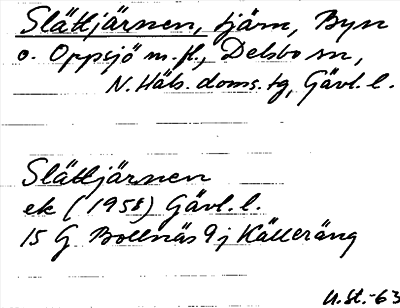 Slättjärnen, tjärn, Byn
o. Oppsjö m.fl., Delsbo sn,
N. Häls. doms. tg, Gävl. l.
Slättjärnen
ek (1958) Gävl. l.
15 G Bollnäs 9 j Källeräng
U.St.-63